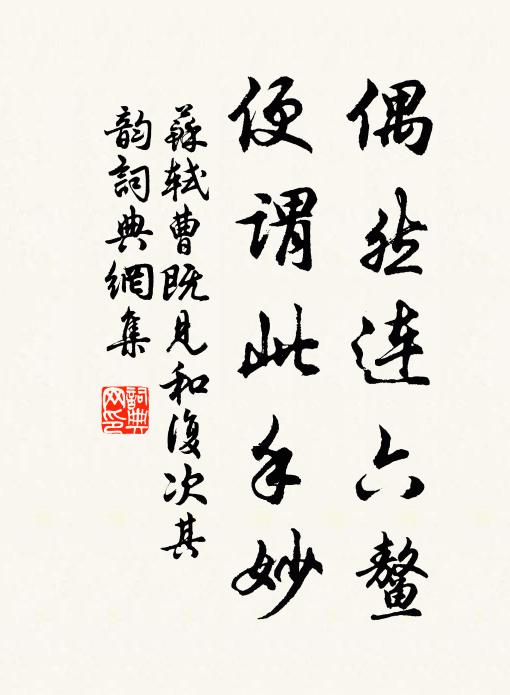 偶然連六鼇
便謂此手妙
蘇軾曹既見和復次其
韵詞典網集
詞典
网印